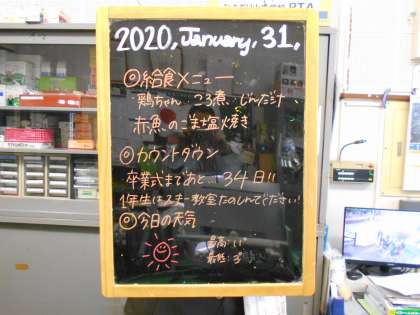 PTA
2020, January, 31,
◎給食メニュー
鶏ちゃん ころ煮 じゃこだけ
赤魚のごま塩焼き
◎カウントダウン
卒業式まであと 34日!!
1年生はスキー教室たのしんでください!
◎今日の天気
最高: 11°
最低: 3°